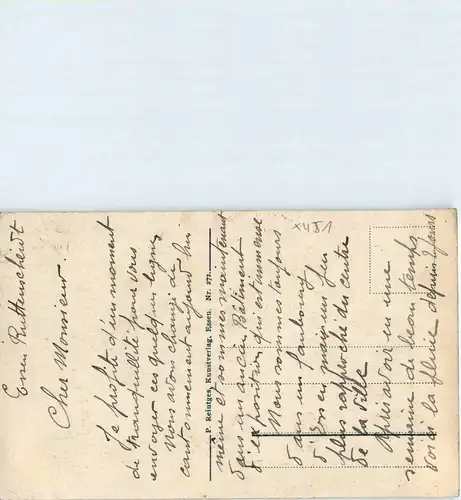 Essen Ruttenscheidt
Cher Monsieur.
Je profite d'un moment
de tranquillité pour vous
envoyer ces quelques lignes
Nous avons changé de
cantonnement aujourd'hui
P. Reintges, Kunstverlag, Essen. Nr. 277.
même et sommes maintenant
dans un ancien Bâtiment
d'exposition qui est immense
Nous sommes toujours
dans un faubourg
d'Essen mais un peu
plus rapproché du centre
de la ville
Après avoir eu une
semaine de beau temps
voici la pluie depuis 2 jours
x451